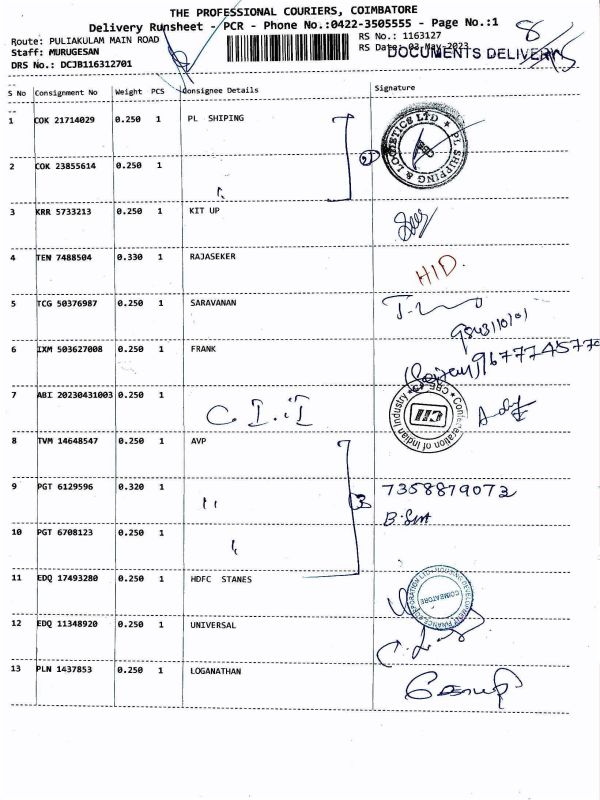 THE PROFESSIONAL COURIERS, COIMBATORE
Delivery Runsheet - PCR - Phone No.:0422-3505555 - Page No.:1
8
Route: PULIAKULAM MAIN ROAD
RS No.: 1163127
Staff: MURUGESAN
RS Date: 03-May-2023
DOCUMENTS DELIVERY
DRS No.: DCJB116312701
S No Consignment No Weight PCS Consignee Details Signature
1 COK 21714029 0.250 1 PL SHIPING
PL SHIPPING & LOGISTICS LTD
2 COK 23855614 0.250 1
3 KRR 5733213 0.250 1 KIT UP
4 TEN 7488504 0.330 1 RAJASEKER HID.
5 TCG 50376987 0.250 1 SARAVANAN
6 IXM 503627008 0.250 1 FRANK
7 ABI 20230431003 0.250 1 C.I.I
Confederation of Indian Industry CBE
CII
8 TVM 14648547 0.250 1 AVP
9 PGT 6129596 0.320 1 " 7358879073
10 PGT 6708123 0.250 1
11 EDQ 17493280 0.250 1 HDFC STANES
COIMBATORE
12 EDQ 11348920 0.250 1 UNIVERSAL
13 PLN 1437853 0.250 1 LOGANATHAN